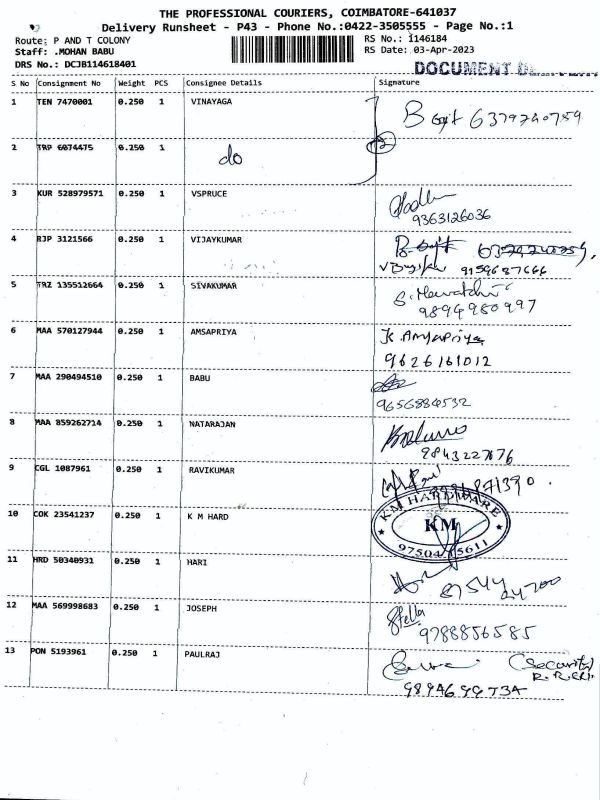 THE PROFESSIONAL COURIERS, COIMBATORE-641037
Delivery Runsheet - P43 - Phone No.:0422-3505555 - Page No.:1
Route: P AND T COLONY RS No.: 1146184
Staff: .MOHAN BABU RS Date: 03-Apr-2023
DRS No.: DCJB114618401 DOCUMENT
S No Consignment No Weight PCS Consignee Details Signature
1 TEN 7470001 0.250 1 VINAYAGA 6379240759
2 TRP 6074475 0.250 1 do 2
3 KUR 528979571 0.250 1 VSPRUCE
9363126036
4 RJP 3121566 0.250 1 VIJAYKUMAR 6379240759,
9159687666
5 TRZ 135512664 0.250 1 SIVAKUMAR
9894980997
6 MAA 570127944 0.250 1 AMSAPRIYA K Amsapriya
9626161012
7 MAA 290494510 0.250 1 BABU
9656884532
8 MAA 859262714 0.250 1 NATARAJAN
9843227676
9 CGL 1087961 0.250 1 RAVIKUMAR
10 COK 23541237 0.250 1 K M HARD KM HARDWARE
KM
11 HRD 50340931 0.250 1 HARI
87544 24700
12 MAA 569998683 0.250 1 JOSEPH Stella
9788856585
13 PON 5193961 0.250 1 PAULRAJ (Security)
9894699734